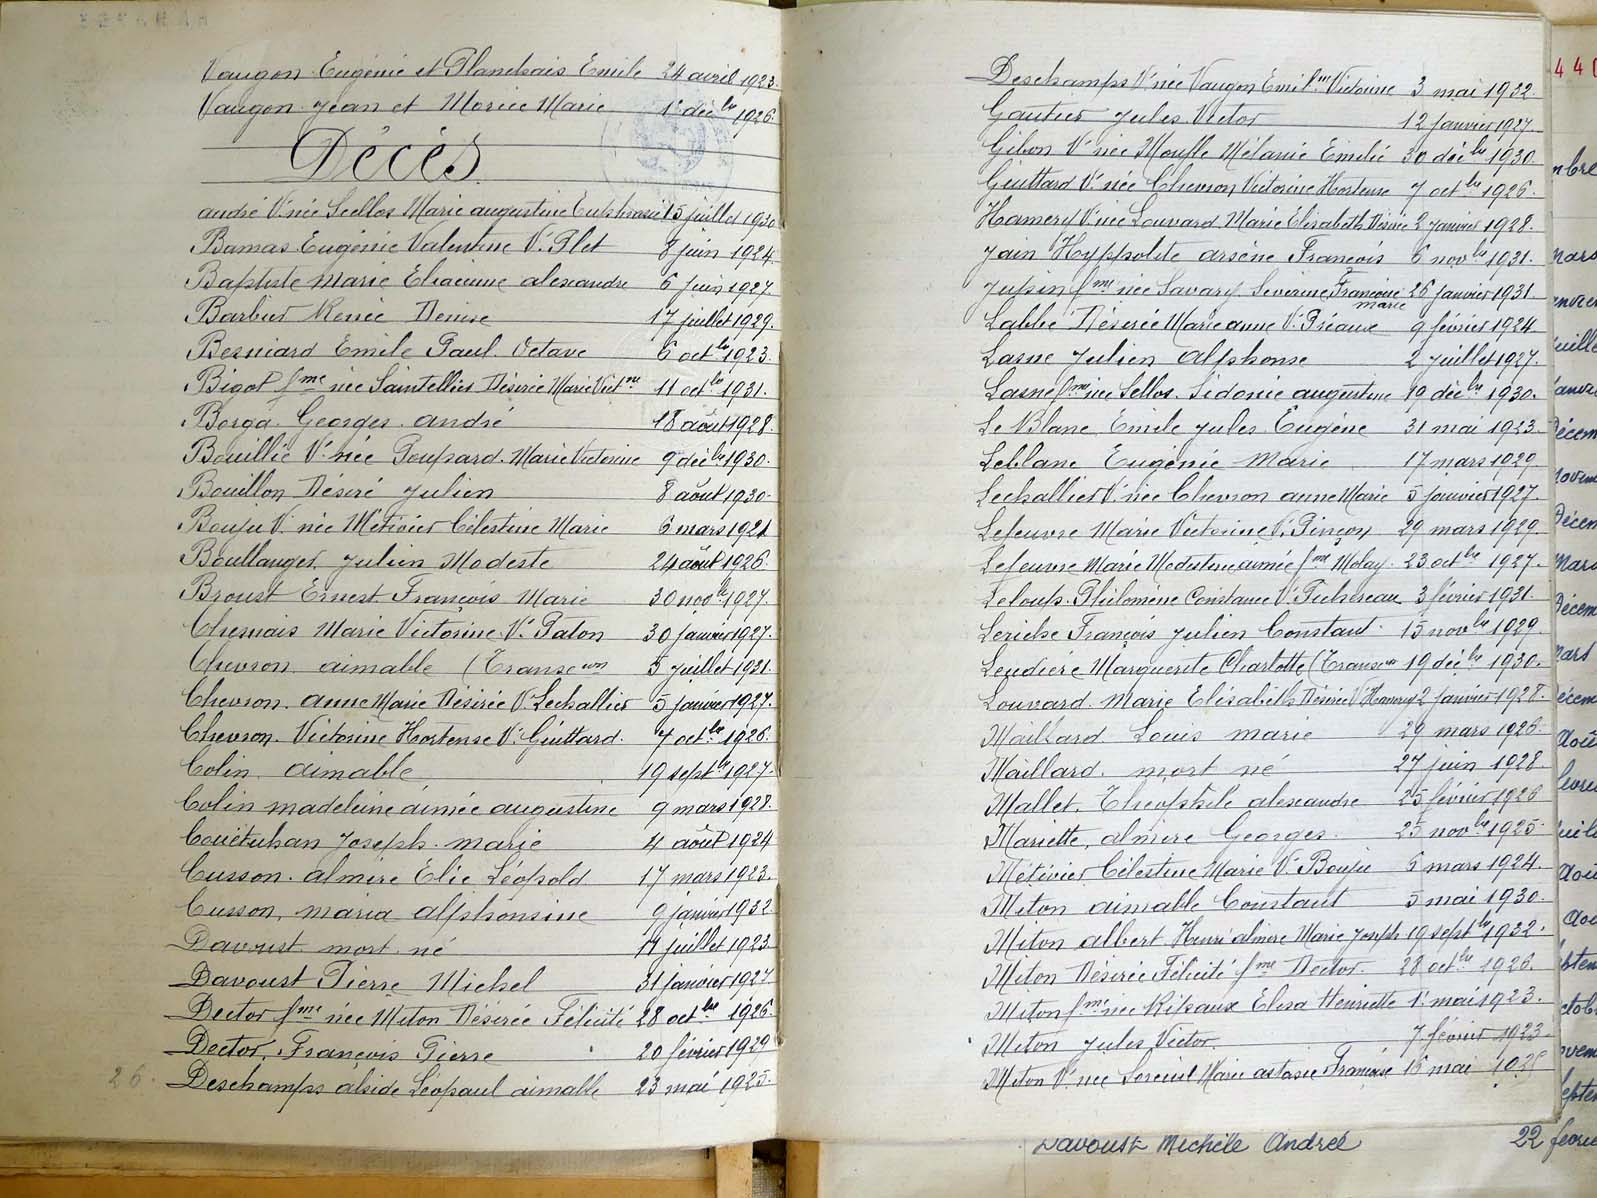 Vaugon Eugénie et Plandrais Emile 24 avril 1923.
Vaugon Jean et Morice Marie 1er décbre 1926.
Décès
André Ve née Sellos Marie Augustine Euphrasie 15 juillet 1930
Bamas Eugénie Valentine Ve Plet 8 juin 1924
Baptiste Marie Eliacinne Alexandre 6 juin 1927.
Barbier Renée Denise 17 juillet 1929.
Besniard Emile Paul Octave 6 octbre 1923.
Bigot fme née Saintellier Désirée Marie Victne 11 octbre 1931.
Borga Georges André 18 août 1928.
Bouillie Ve née Poupard Marie Victorine 9 décbre 1930.
Bouillon Désiré Julien 8 août 1930.
Bouju Ve née Métivier Célestine Marie 6 mars 1924
Boullanger Julien Modeste 24 août 1926.
Broust Ernest François Marie 30 novbre 1927.
Chesnais Marie Victorine Ve Palon 30 janvier 1927.
Chevron aimable (Transcon 5 juillet 1931.
Chevron Anne Marie Désirée Ve Lechallier 5 janvier 1927.
Chevron Victorine Hortense Ve Guittard 7 octbre 1926.
Colin aimable 19 septbre 1927.
Colin Madeleine aimée Augustine 9 mars 1928.
Couëtuhan Joseph Marie 4 août 1924
Cusson Almire Elie Léopold 17 mars 1923.
Cusson Maria Alphonsine 9 janvier 1932
Davoust mort né 17 juillet 1923
Davoust Pierre Michel 31 janvier 1927
Dector fme née Miton Désirée Félicité 28 octbre 1926.
Dector François Pierre 20 février 1929
26. Deschamps alside Léopaul aimable 23 mai 1925.
Deschamps Ve née Vaugon Emilne Victorine 3 mai 1932
Gautier Jules Victor 12 janvier 1927.
Gibon Ve née Moufle Mélanie Emilie 30 décbre 1930
Guittard Ve née Chevron Victorine Hortense 7 octbre 1926.
Hamery Ve née Louvard Marie Elisabeth Désirée 2 janvier 1928.
Jain Hyppolite arsène François 6 novbre 1931.
Jupin fme née Savary Séverine Françoise Marie 26 janvier 1931
Labbé Désirée Marie anne Ve Préaux 9 février 1924
Lasne Julien Alphonse 2 juillet 1927.
Lasne fme née Sellos Sidonie augustine 19 décbre 1930.
Le Blanc Emile Jules Eugène 31 mai 1923.
Leblanc Eugénie Marie 17 mars 1929
Lechallier Ve née Chevron anne Marie 5 janvier 1927.
Lefeuvre Marie Victorine Ve Pinçon 29 mars 1929.
Lefeuvre Marie Modestine aimée fme Molay 23 octbre 1927.
Leloup Philomène Constance Ve Fichereau 3 février 1931.
Leriche François Julien Constant 15 novbre 1929
Leudière Marguerite Charlotte (Transcon 19 décbre 1930.
Louvard Marie Elisabeth Désirée Ve Hamery 2 janvier 1928.
Maillard Louis Marie 29 mars 1926
Maillard mort né 27 juin 1928
Mallet Théophile alexandre 25 février 1926
Mariette almire Georges 25 novbre 1925
Métivier Célestine Marie Ve Bouju 6 mars 1924.
Miton aimable Constant 5 mai 1930.
Miton albert Henri almire Marie Joseph 19 septbre 1932.
Miton Désirée Félicité fme Dector 28 octbre 1926.
Miton fme née Ripaux Elisa Henriette 1er mai 1923.
Miton Jules Victor 7 février 1923
Miton Ve née Marie astasie Françoise 16 mai
Davoust Michèle Andrée 22 févrie